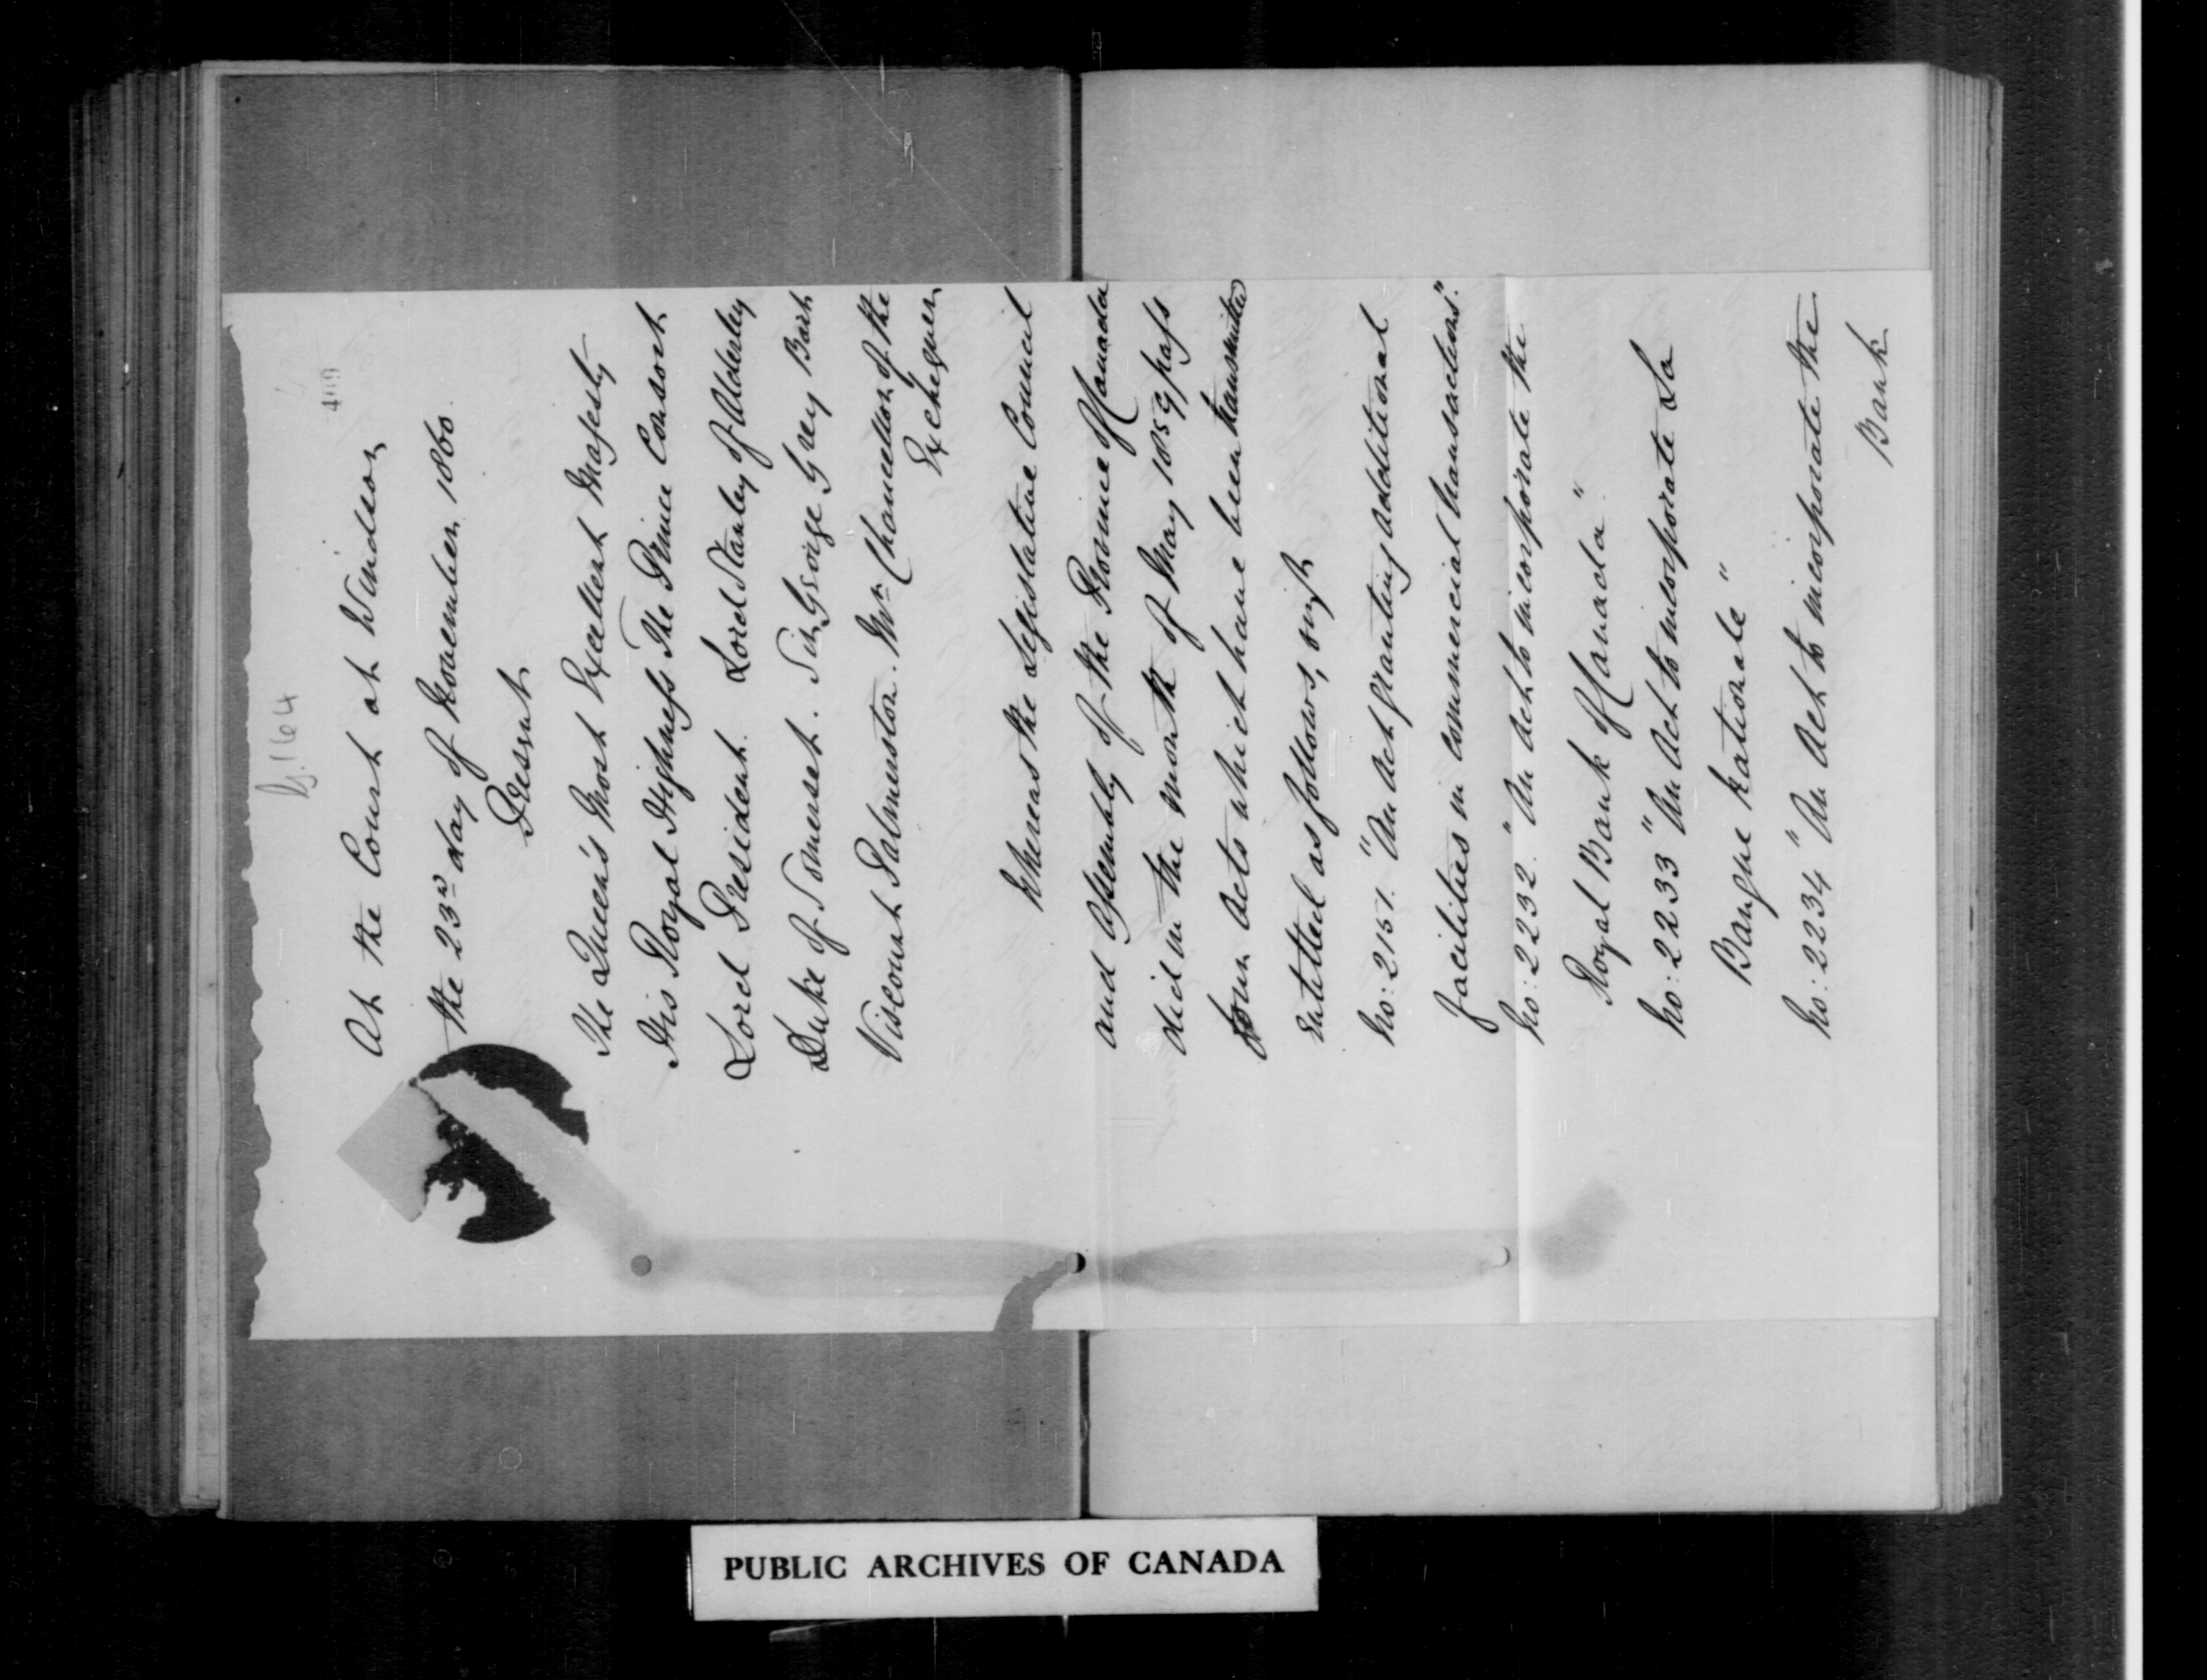 G.164
409
At the Court at Windsor
the 23rd day of November 1860.
Present
The Queen's Most Excellent Majesty
His Royal Highness The Prince Consort
Lord President. Lord Stanley of Alderley
Duke of Somerset. Sir George Grey Bart
Viscount Palmerston. Mr. Chancellor of the
Exchequer
Whereas the Legislative Council
and Assembly of the Province of Canada
did in the month of May 1859 pass
four Acts which have been transmitted
entitled as follows, vizt
No: 2151. "An Act granting additional
facilities in commercial transactions".
No: 2232. "An Act to incorporate the
Royal Bank of Canada".
No: 2233 "An Act to incorporate La
Banque Nationale"
No: 2234 "An Act to incorporate the
Bank
PUBLIC ARCHIVES OF CANADA